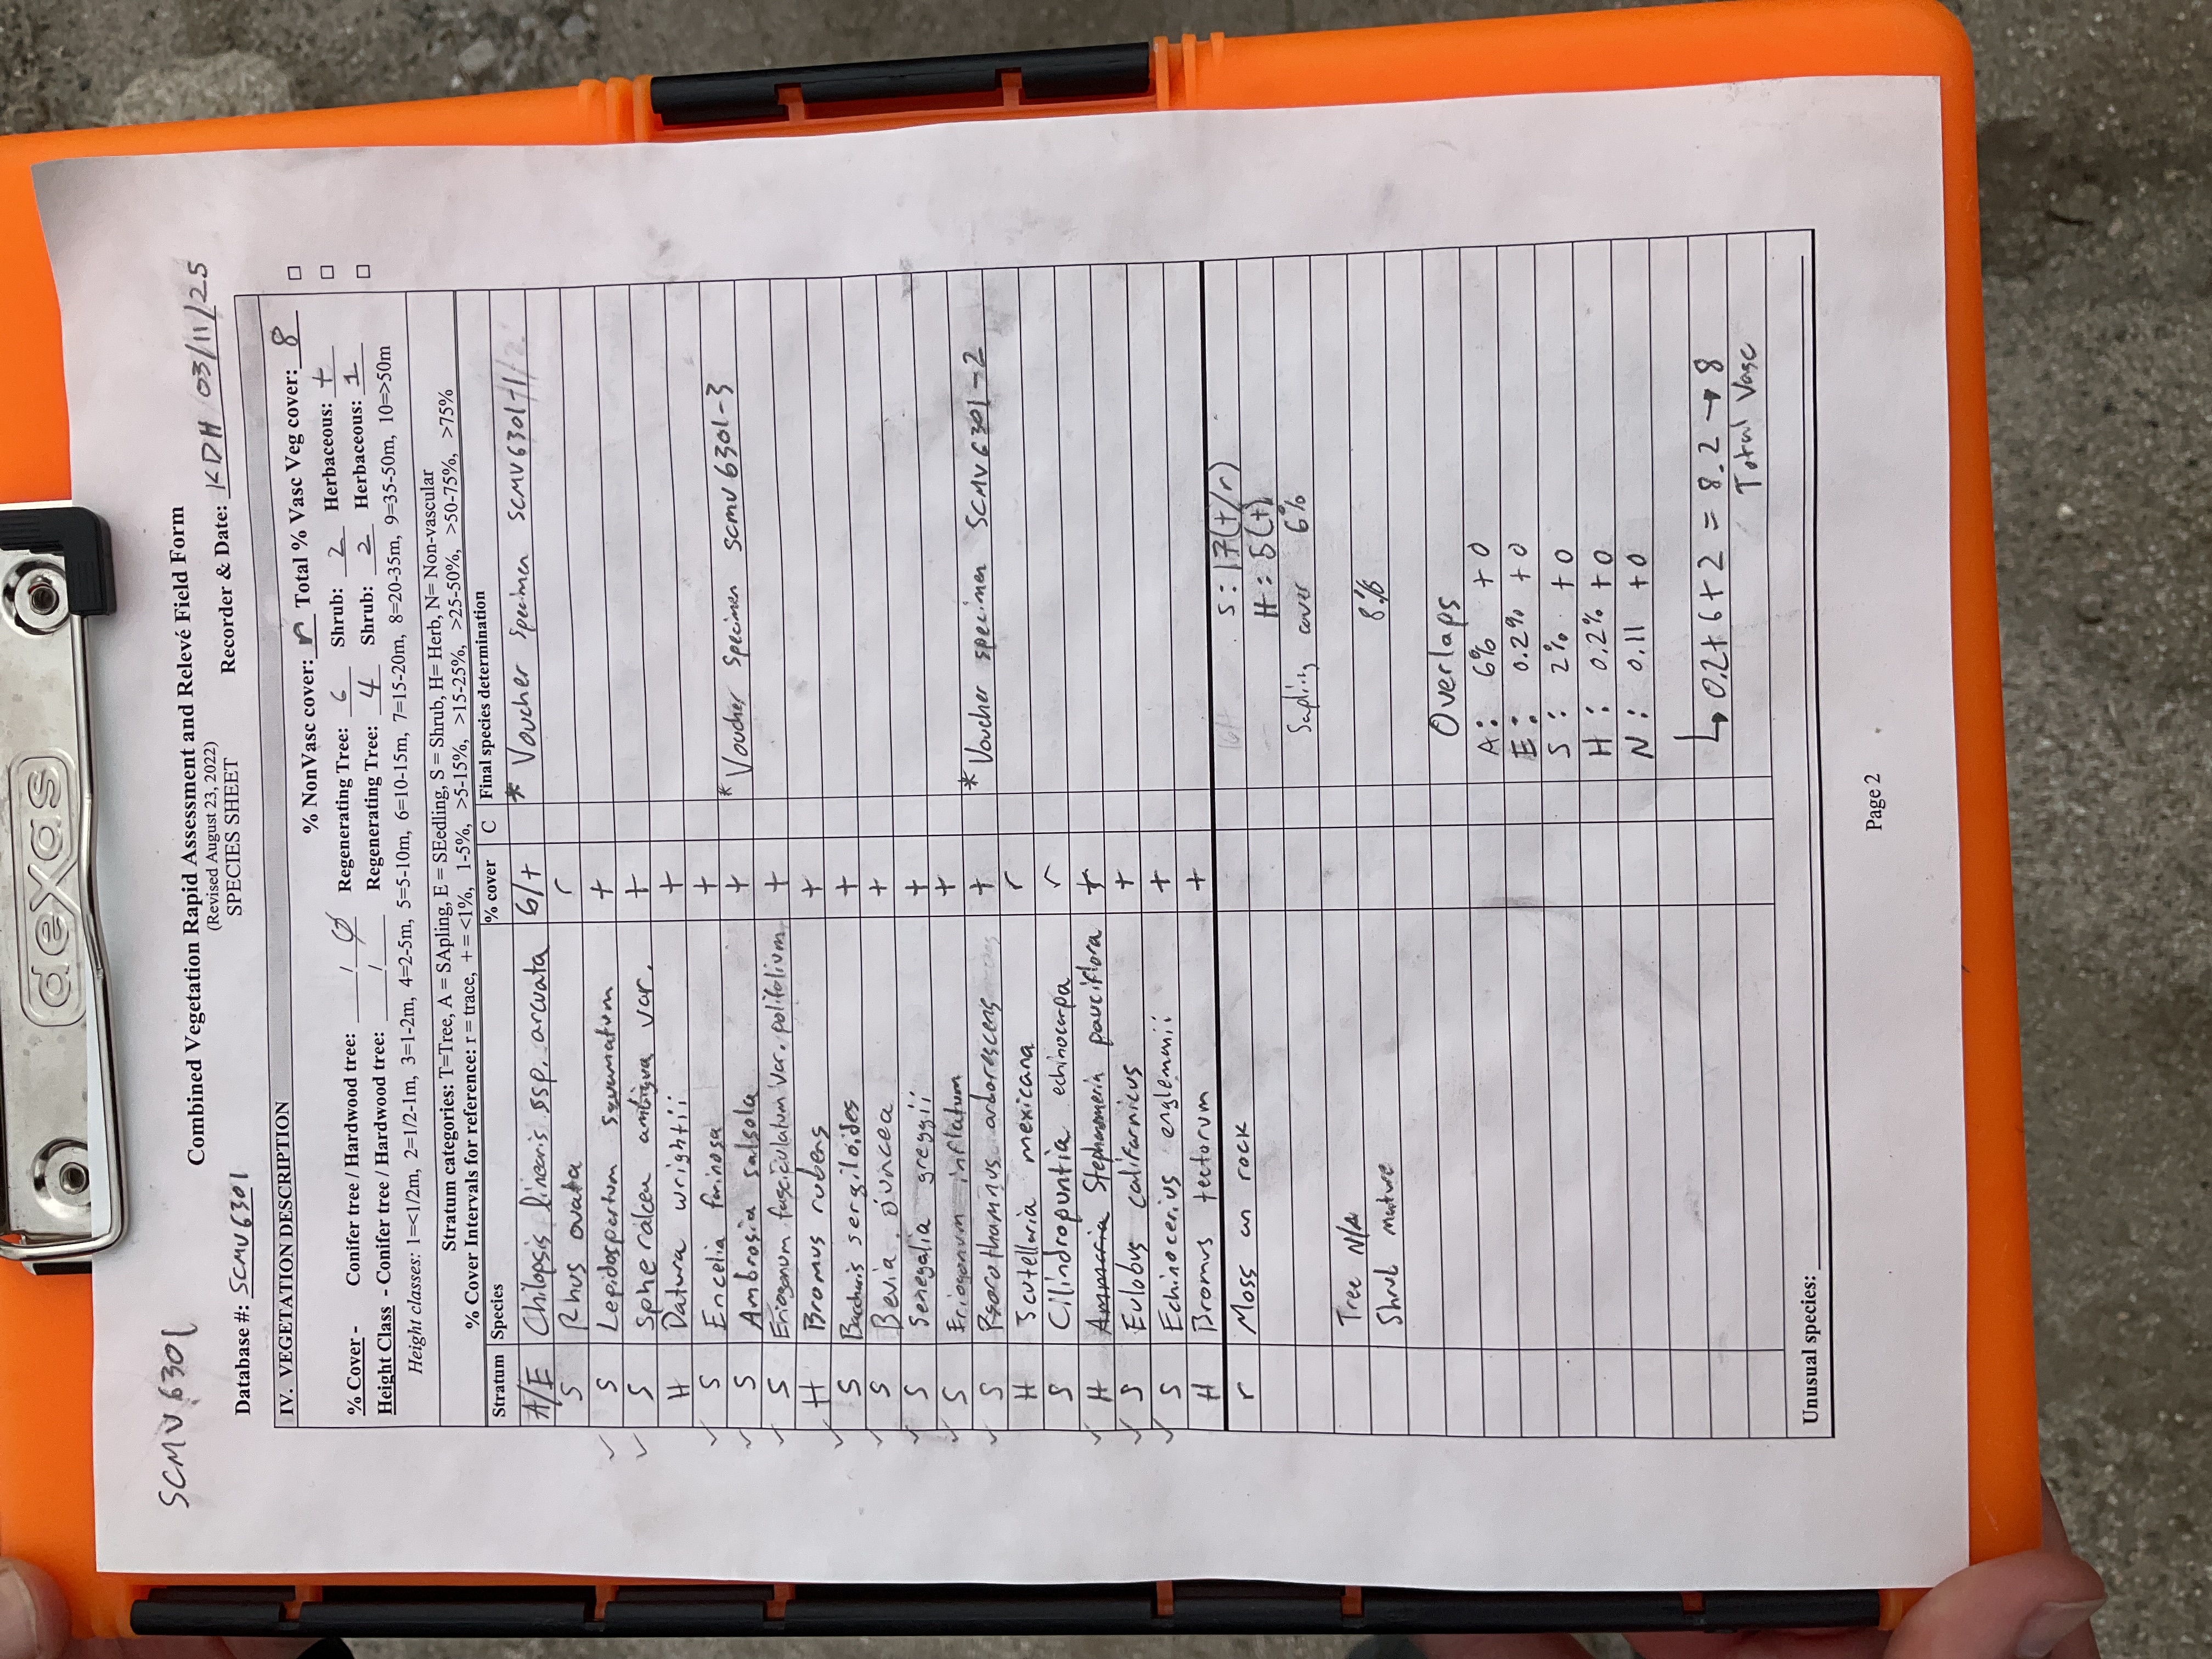 dexas
SCMV6301
Combined Vegetation Rapid Assessment and Relevé Field Form
(Revised August 23, 2022)
SPECIES SHEET
Database #: SCMV6301 Recorder & Date: KDH / 03/11/25
IV. VEGETATION DESCRIPTION
% NonVasc cover: r Total % Vasc Veg cover: 8
% Cover - Conifer tree / Hardwood tree: / Ø Regenerating Tree: 6 Shrub: 2 Herbaceous: +
Height Class - Conifer tree / Hardwood tree: / Regenerating Tree: 4 Shrub: 2 Herbaceous: 1
Height classes: 1=<1/2m, 2=1/2-1m, 3=1-2m, 4=2-5m, 5=5-10m, 6=10-15m, 7=15-20m, 8=20-35m, 9=35-50m, 10=>50m
Stratum categories: T=Tree, A = SApling, E = SEedling, S = Shrub, H= Herb, N= Non-vascular
% Cover Intervals for reference: r = trace, + = <1%, 1-5%, >5-15%, >15-25%, >25-50%, >50-75%, >75%
Stratum Species % cover C Final species determination
A/E Chilopsis linearis ssp. arcuata 6/+ * Voucher specimen SCMV6301-1/2
S Rhus ovata r
✓ S Lepidospartum squamatum +
✓ S Sphaeralcea ambigua var. +
H Datura wrightii +
✓ S Encelia farinosa +
✓ S Ambrosia salsola + * Voucher specimen SCMV6301-3
✓ S Eriogonum fasciculatum var. polifolium +
H Bromus rubens +
✓ S Baccharis sergiloides +
✓ S Bevia juncea +
✓ S Senegalia greggii +
✓ S Eriogonum inflatum +
✓ S Psorothamnus arborescens + * Voucher specimen SCMV6301-2
H Scutellaria mexicana r
S Cilindropuntia echinocarpa r
✓ H Stephanomeria pauciflora +
✓ S Eulobus californicus +
✓ S Echinocerius englemanii +
H Bromus tectorum +
r Moss on rock S: 17(+/r)
H: 5(+)
Sapling cover 6%
Tree N/A
Shrub mature 8%
Overlaps
A: 6% +0
E: 0.2% +0
S: 2% +0
H: 0.2% +0
N: 0.11 +0
↳ 0.2+6+2 = 8.2 → 8
Total Vasc
Unusual species:
Page 2